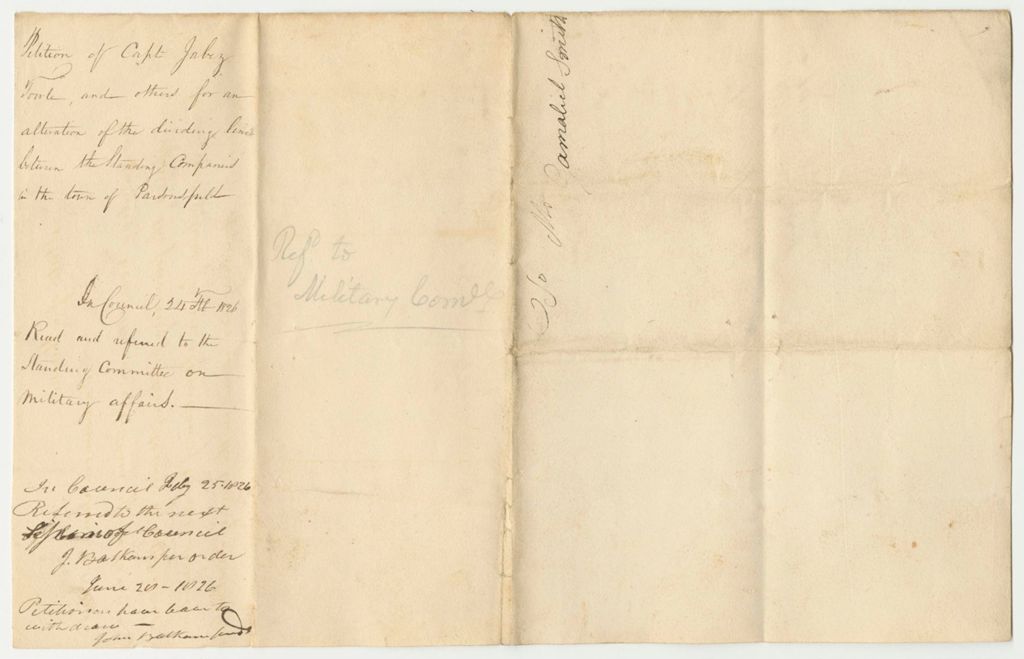 Petition of Capt Jabez
Towle, and others for an
alteration of the dividing line
between the Standing Companies
in the town of Parsonsfield
In Council, 24 Feb 1826
Read and referred to the
Standing Committee on
Military affairs.
In Council Feby 25-1826
Referred to the next
Session of Council
J. Balkam per order
June 20-1826
Petitioners have leave to
withdraw
John Balkam
Refd to
Military Come
To Mr Gamaliel Smith